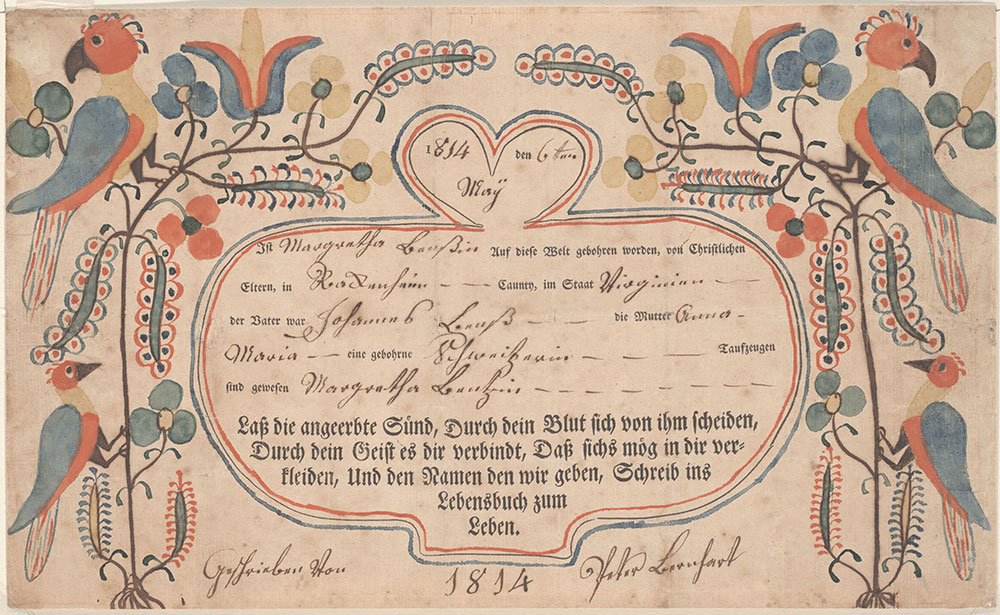 1814 den 6ten
Maÿ
Ist Margretha Lentzin Auf diese Welt gebohren worden, von Christlichen
Eltern, in Rakenhäm — — Caunty, im Staat Virginien —
der Vater war Johannes Lentz — — die Mutter Anna
Maria — eine gebohrne Schweitzerin — — — — Taufzeugen
sind gewesen Margretha Lentzin — — — — — —
Laß die angeerbte Sünd, Durch dein Blut sich von ihm scheiden,
Durch dein Geist es dir verbindt, Daß sichs mög in dir ver-
kleiden, Und den Namen den wir geben, Schreib ins
Lebensbuch zum
Leben.
Geschrieben Von 1814 Peter Bernhart